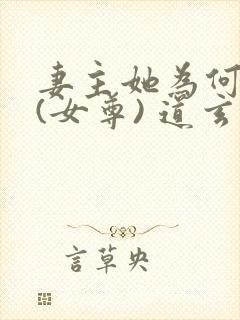 妻主她为何
(女尊)道玄
言草央